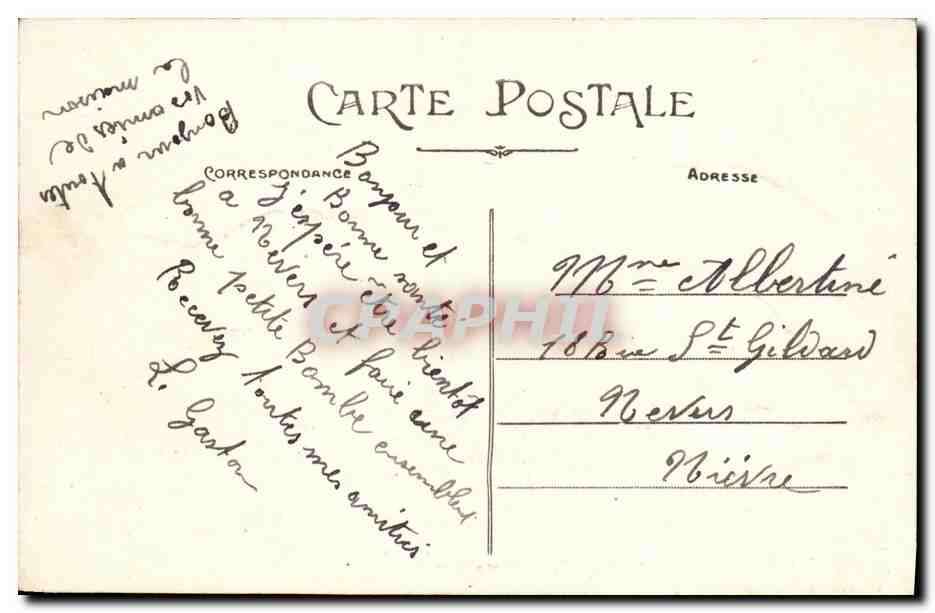 CARTE POSTALE
CORRESPONDANCE
ADRESSE
Bonjour a toutes
vos amies de
la maison
Bonjour et
Bonne santé
J'espère etre bientôt
a Nevers et faire une
bonne petite Bombe ensemble
Recevez toutes mes amitiés
L. Gaston
Mme Albertine
18 Rue St Gildard
Nevers
Nièvre
CRAPHIL